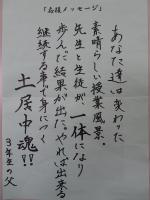 「応援メッセージ」
あなた達は変わった
素晴らしい授業風景。
先生と生徒が一体になり
歩んだ結果が出た。やれば出来る
継続する事で身につく
土居中魂!!
3年生の父